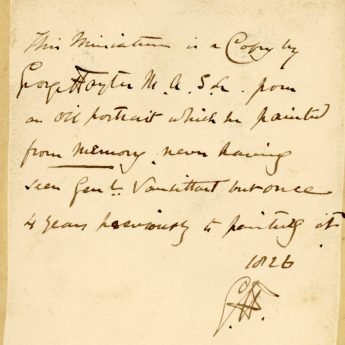 This Miniature is a Copy by
George Hayter M. A. S. L. from
an Oil portrait which he painted
from memory, never having
seen Genl. Vansittart but once
4 years previously to painting it
1826
G.H.